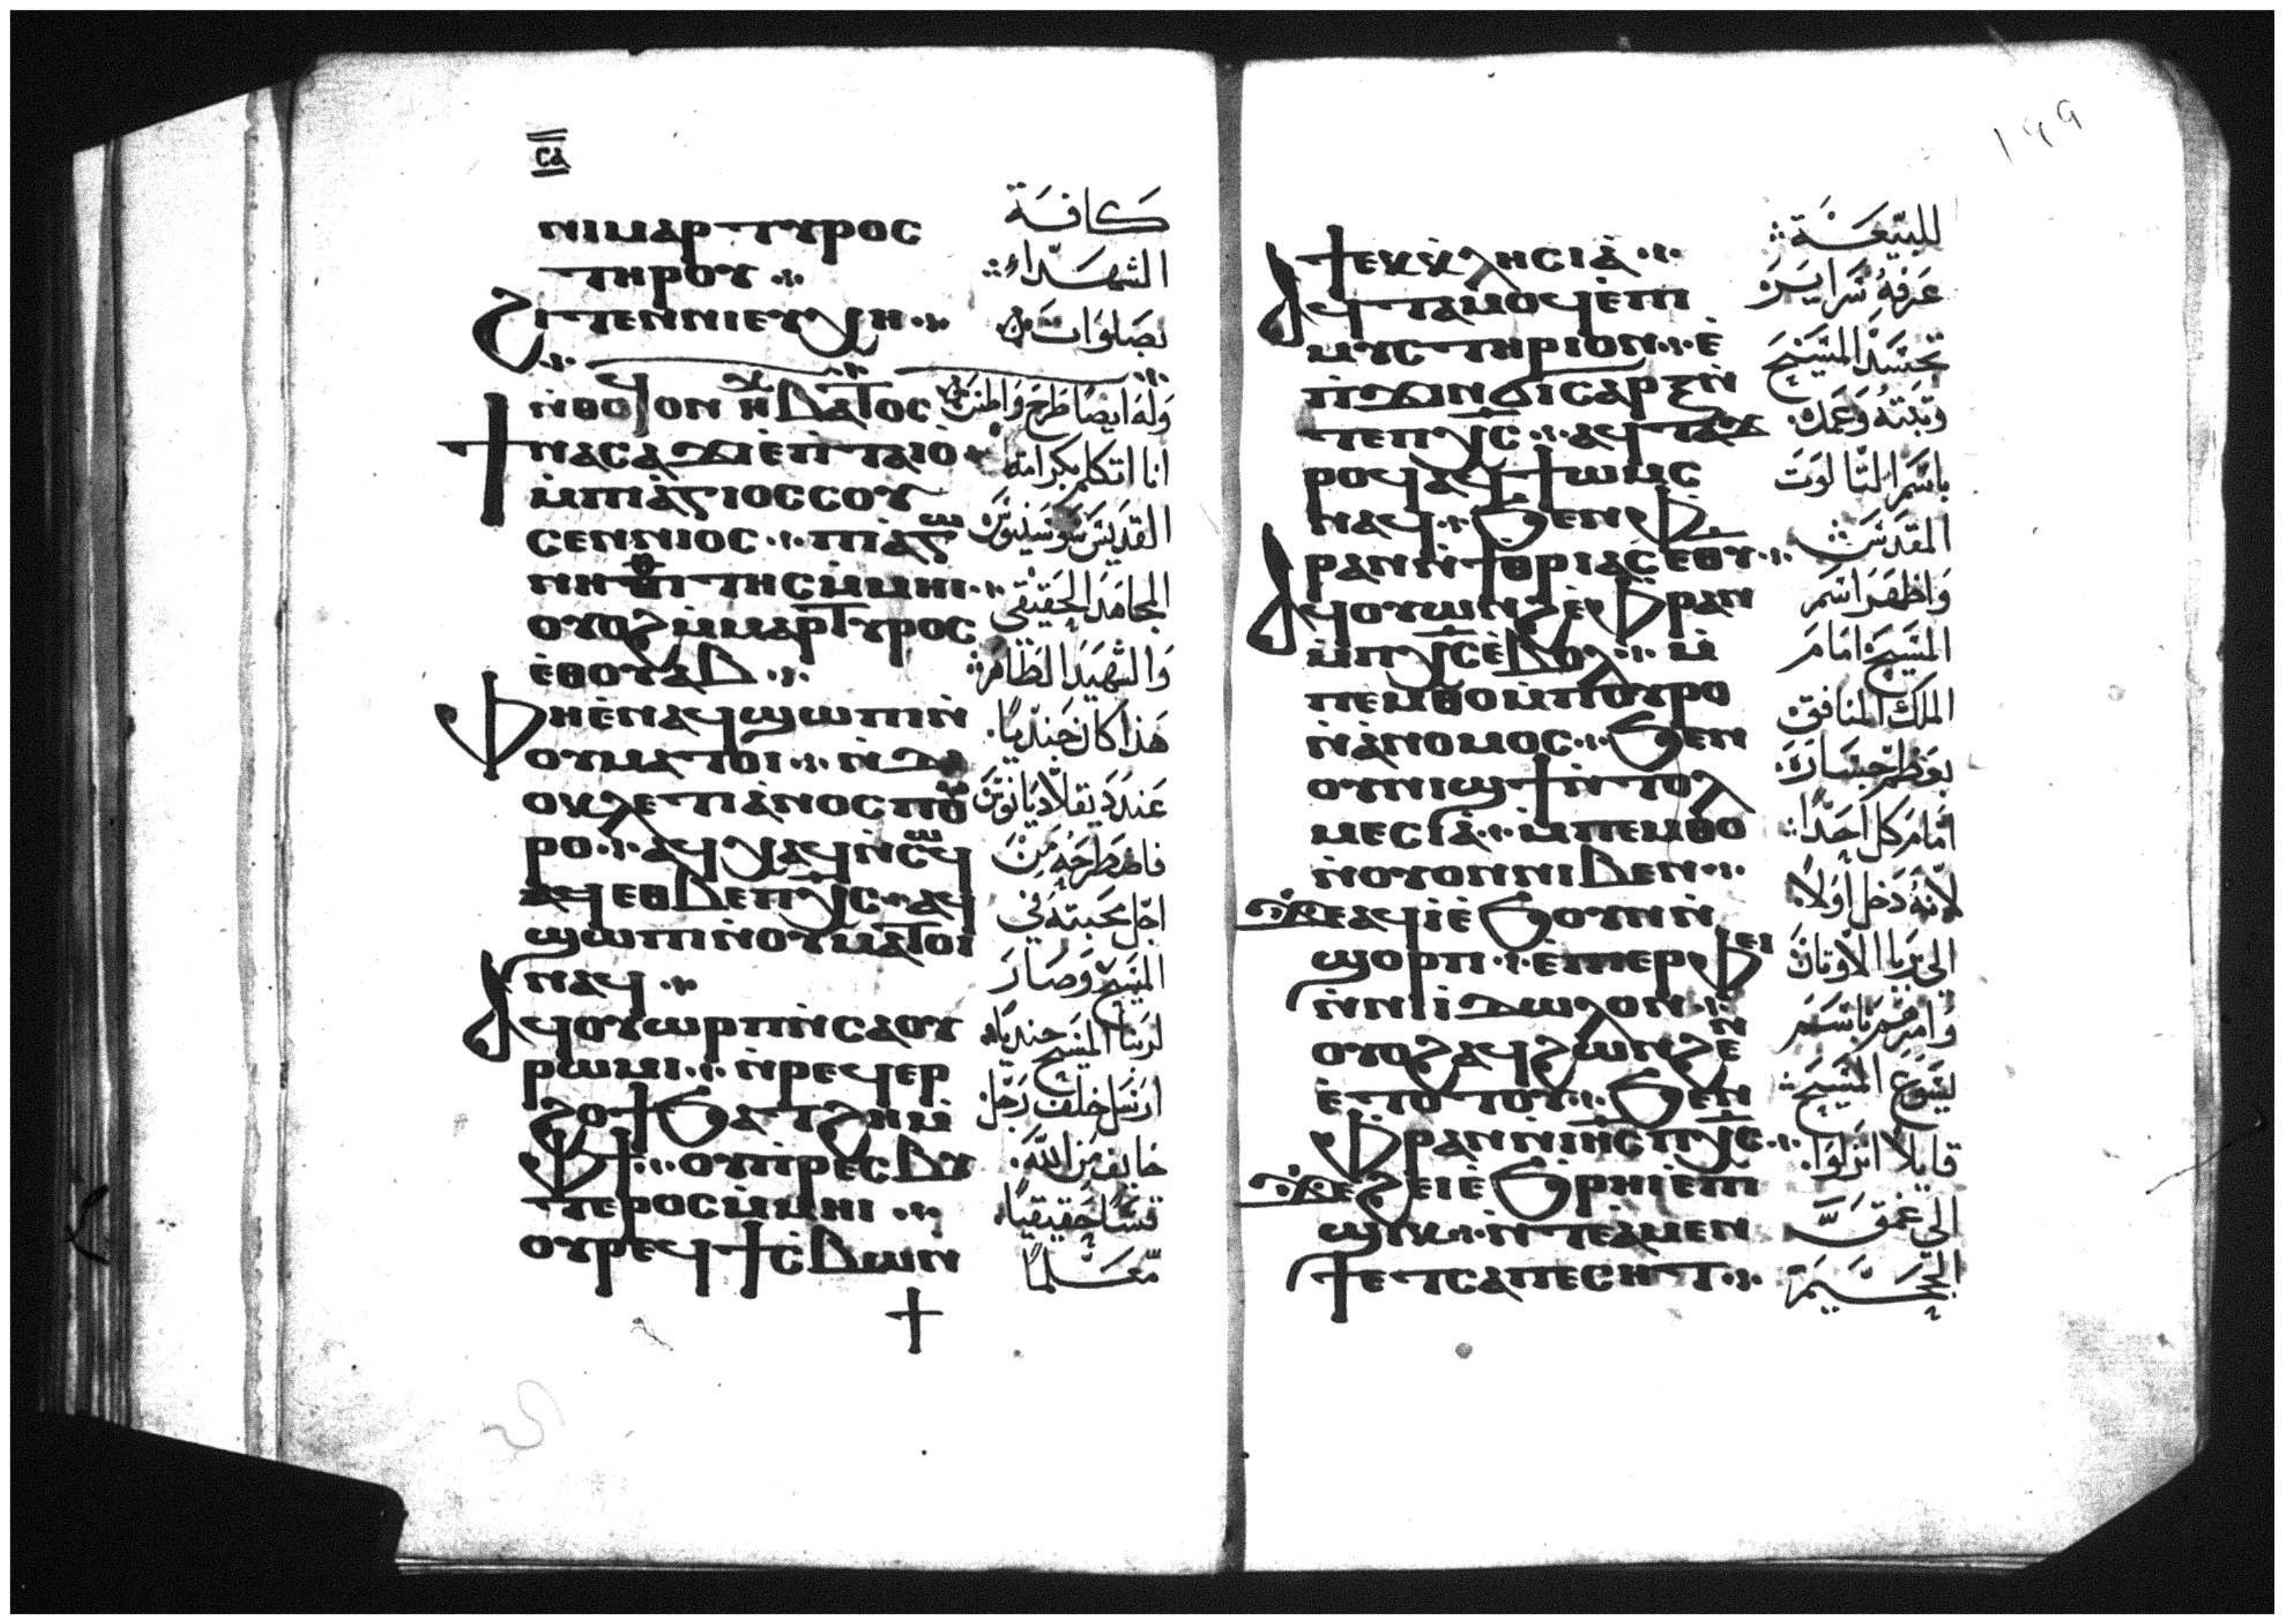 ⲥⲁ
ⲛⲓⲙⲁⲣⲧⲩⲣⲟⲥ
ⲧⲏⲣⲟⲩ
ϩⲓⲧⲉⲛⲛⲓⲉⲩⲭⲏ
ⲛ̀ⲑⲟϥ ⲟⲛ ⲃⲁⲧⲟⲥ
ϯⲛⲁⲥⲁϫⲓⲉ̀ⲡ̀ⲧⲁⲓⲟ
ⲙ̀ⲡⲓⲁ̀ⲅⲓⲟⲥⲥⲟⲩ
ⲥⲉⲛⲛⲓⲟⲥ ⲡⲓⲁ̀ⲅⲱ
ⲛⲏⲑⲓⲧⲏⲥⲙ̀ⲙⲏⲓ
ⲟⲩⲟϩⲙ̀ⲙⲁⲣⲧⲩⲣⲟⲥ
ⲉ̀ⲑⲟⲩⲁⲃ
ⲫⲏⲉ̀ⲛⲁϥϣⲱⲡⲓⲛ̀
ⲟⲩⲙⲁⲧⲟⲓ ⲛ̀ⲇⲓ
ⲟⲕⲗⲉⲧⲓⲁ̀ⲛⲟⲥⲡⲟⲩ
ⲣⲟ ⲁϥⲭⲁϥⲛ̀ⲥⲱϥ
ⲁϥⲉⲑⲃⲉⲡⲭ̅ⲥ̅ ⲁϥ
ϣⲱⲡⲓⲛ̀ⲟⲩⲙⲁⲧⲟⲓ
ⲛⲁϥ
ⲁϥⲟⲩⲱⲣⲡⲛ̀ⲥⲁⲟⲩ
ⲣⲱⲙⲓ ⲛ̀ⲣⲉϥⲉⲣ
ϩⲟϯϧⲁⲧϩⲏⲙ̀
ⲫϯ ⲟⲩⲡ̀ⲣⲉⲥⲃⲩ
ⲧⲉⲣⲟⲥⲙ̀ⲙⲏⲓ
ⲟⲩⲣⲉϥϯⲥ̀ⲃⲱⲛ̀
كافة
الشهداء
بصلوات
وله ايضا طرح واطس
انا اتكلم بكرامة
القديس سوسنيوس
المجاهد الحقيقي
والشهيد الطاهر
هذا كان جنديا
عند ديقلاديانوس
فاطرحه من
اجل محبته في
المسيح وصار
لربنا المسيح جنديا
ارسل خلف رجل
خايف من الله
قسا حقيقيا
معلما
١٩٩
ϯⲉⲕⲕⲗⲏⲥⲓⲁ̀
ⲁϥⲧⲁⲙⲟϥⲉ̀ⲡⲓ
ⲙⲩⲥⲧⲏⲣⲓⲟⲛ ⲉ̀
ⲡ̀ϫⲓⲛϭⲓⲥⲁⲣⲝⲛ̀
ⲧⲉⲡⲭ̅ⲥ̅ ⲁϥⲧⲁϫ
ⲣⲟϥⲁϥϯⲱⲙⲥ
ⲛⲁϥ ϧⲉⲛⲫ̀
ⲣⲁⲛⲛ̀ϯⲑⲣⲓⲁⲥⲉⲑⲩ
ⲁϥⲟⲩⲱⲛϩⲉ̀ⲫ̀ⲣⲁⲛ
ⲙ̀ⲡⲭ̅ⲥ̅ⲉ̀ⲃⲟⲗ ⲙ̀
ⲡⲉⲙⲑⲟⲙ̀ⲡⲟⲩⲣⲟ
ⲛ̀ⲁ̀ⲛⲟⲙⲟⲥ ϧⲉⲛ
ⲟⲩⲛⲓϣϯⲛ̀ⲧⲟⲗ
ⲙⲉⲥⲓⲁ̀ ⲙ̀ⲡⲉⲙⲑⲟ
ⲛ̀ⲟⲩⲟⲛⲛⲓⲃⲉⲛ
ϫⲉⲁϥⲓ̀ⲉ̀ϧⲟⲩⲛⲛ̀
ϣⲟⲣⲡ ⲉ̀ⲡⲉⲣⲫⲉⲓ
ⲛ̀ⲛⲓⲓ̀ⲇⲱⲗⲟⲛ
ⲟⲩⲟϩⲁϥϩⲱⲛϩⲉⲛ
ⲉ̀ⲧⲟⲧⲟⲩ ϧⲉⲛ
ⲫ̀ⲣⲁⲛⲛ̀ⲓⲏ̅ⲥ̅ⲡⲭ̅ⲥ̅
ϫⲉϩⲉⲓⲉ̀ϧ̀ⲣⲏⲓⲉ̀ⲡ
ϣⲓⲕ ⲛ̀ⲧⲉⲁ̀ⲙⲉⲛ
ϯⲉⲧⲥⲁⲡⲉⲥⲏⲧ
للبيعة
عرفه سراير
تجسد المسيح
وثبته وعمده
باسم الثالوث
المقدس
واظهر اسم
المسيح امام
الملك المنافق
بعظم جسارة
امام كل احدا
لانه دخل اولا
الى بربا الاوثان
وامرهم باسم
يسوع المسيح
قايلا انزلوا
الى عمق
الجحيم